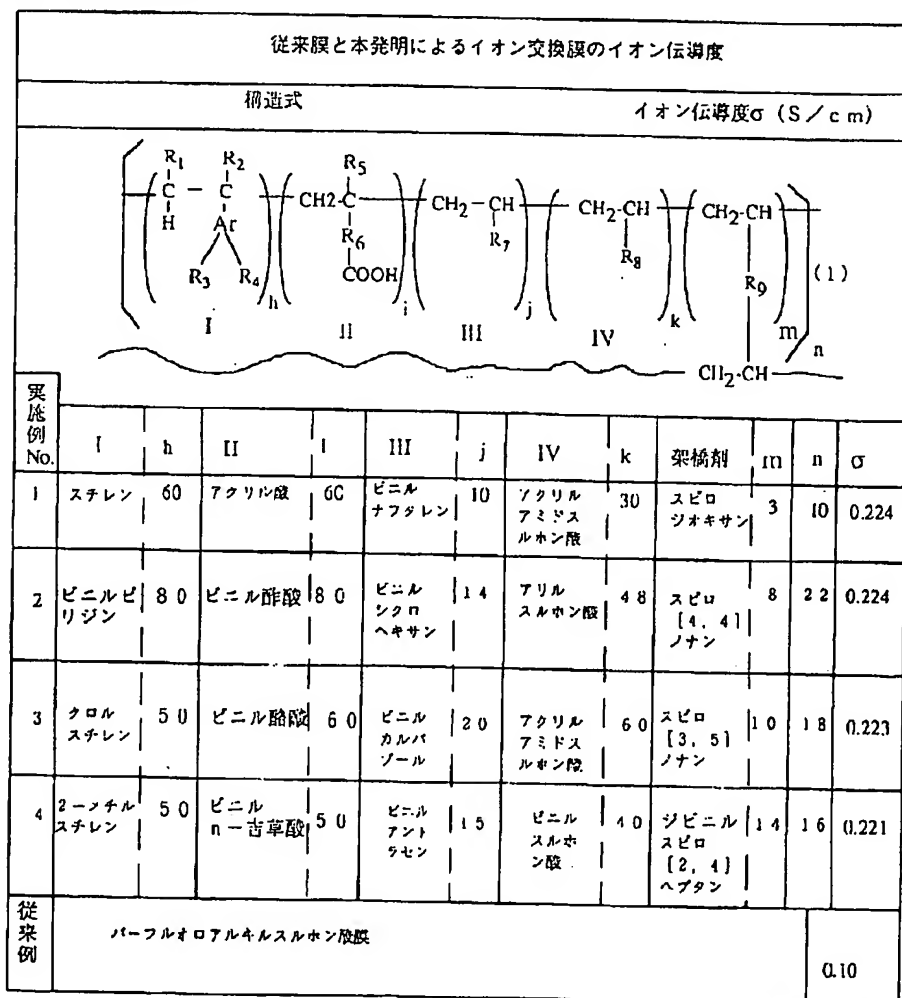 従来膜と本発明によるイオン交換膜のイオン伝導度
構造式
イオン伝導度σ (S/cm)
R1 R2 R5
C — C CH2-C CH2-CH CH2-CH CH2-CH
H Ar R6 R7 R8 R9 (1)
R3 R4 COOH
h i j k m n
I II III IV
CH2-CH
実施例No. I h II i III j IV k 架橋剤 m n σ
1 スチレン 60 アクリル酸 60 ビニルナフタレン 10 アクリルアミドスルホン酸 30 スピロジオキサン 3 10 0.224
2 ビニルピリジン 80 ビニル酢酸 80 ビニルシクロヘキサン 14 アリルスルホン酸 48 スピロ[4, 4]ノナン 8 22 0.224
3 クロルスチレン 50 ビニル酪酸 60 ビニルカルバゾール 20 アクリルアミドスルホン酸 60 スピロ[3, 5]ノナン 10 18 0.223
4 2-メチルスチレン 50 ビニルn-吉草酸 50 ビニルアントラセン 15 ビニルスルホン酸 40 ジビニルスピロ[2, 4]ヘプタン 14 16 0.221
従来例 パーフルオロアルキルスルホン酸膜 0.10